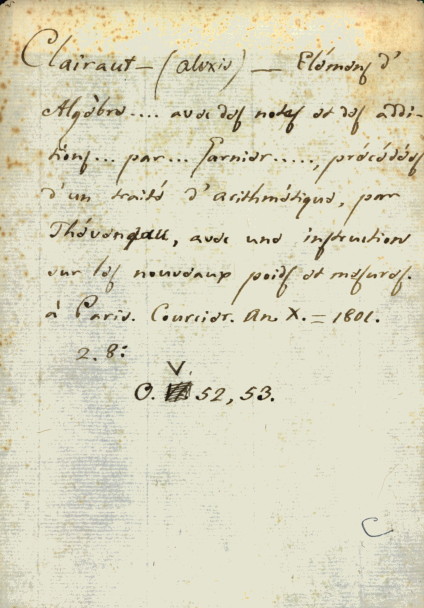 Clairaut – (Alexis) — Elémens d'
Algèbre.... avec des notes et des addi-
tions... par... Garnier....., précédées
d'un traité d'arithmétique, par
Théveneau, avec une instruction
sur les nouveaux poids et mesures.
à Paris. Courcier. An X. = 1801.
2. 8:
V.
O. 52, 53.
C